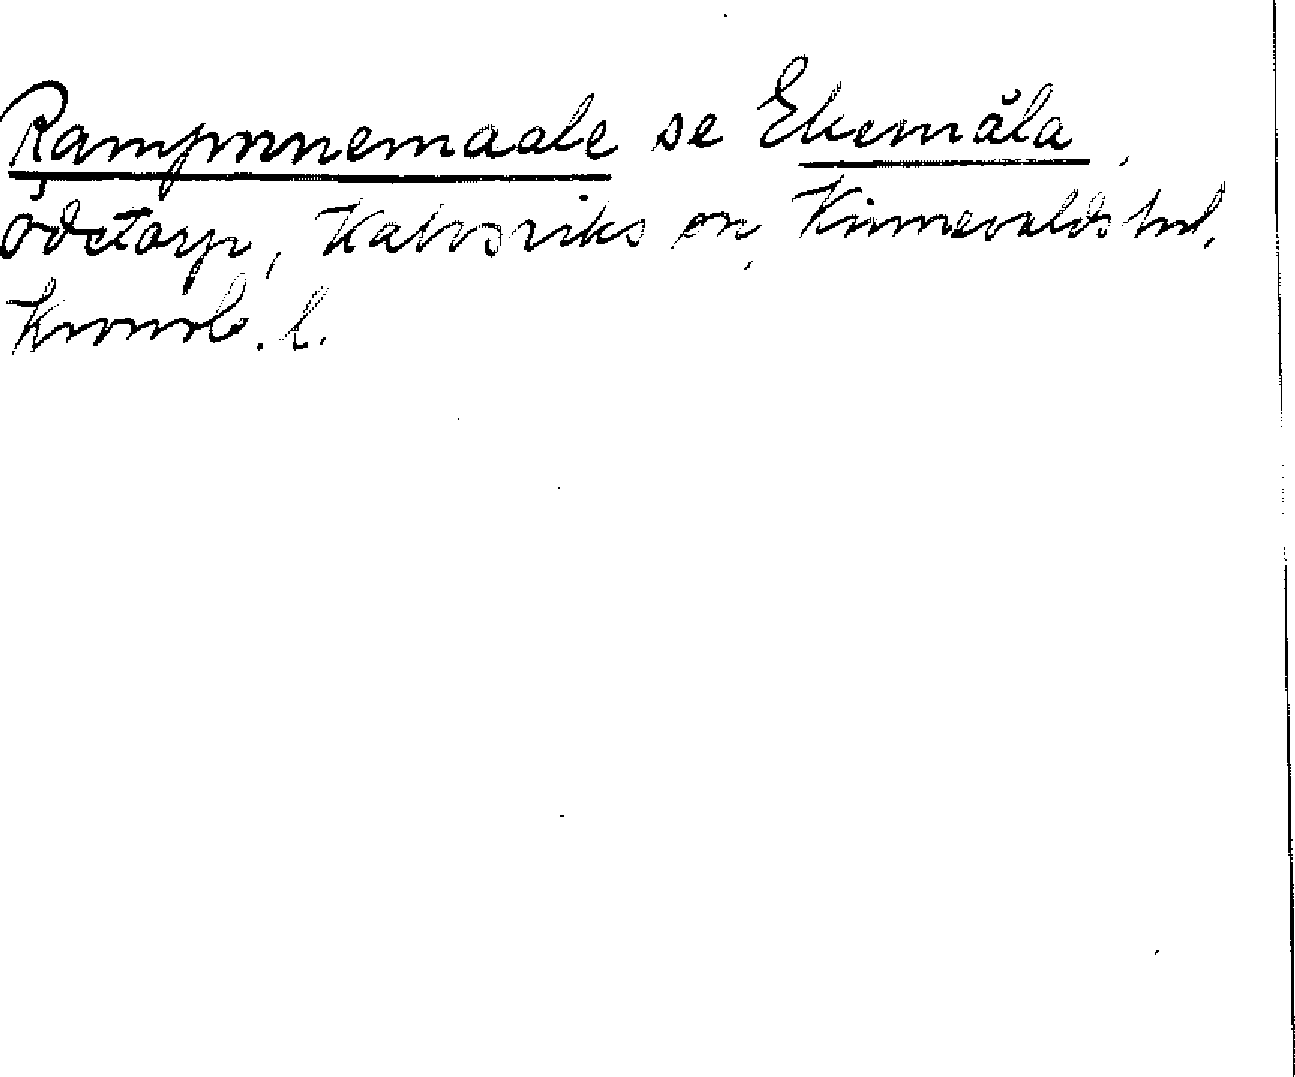 Ramponnemaale se Ekemåla,
ödetorp, Kalvsviks sn, Kinnevalds hd.
Kronob. l.